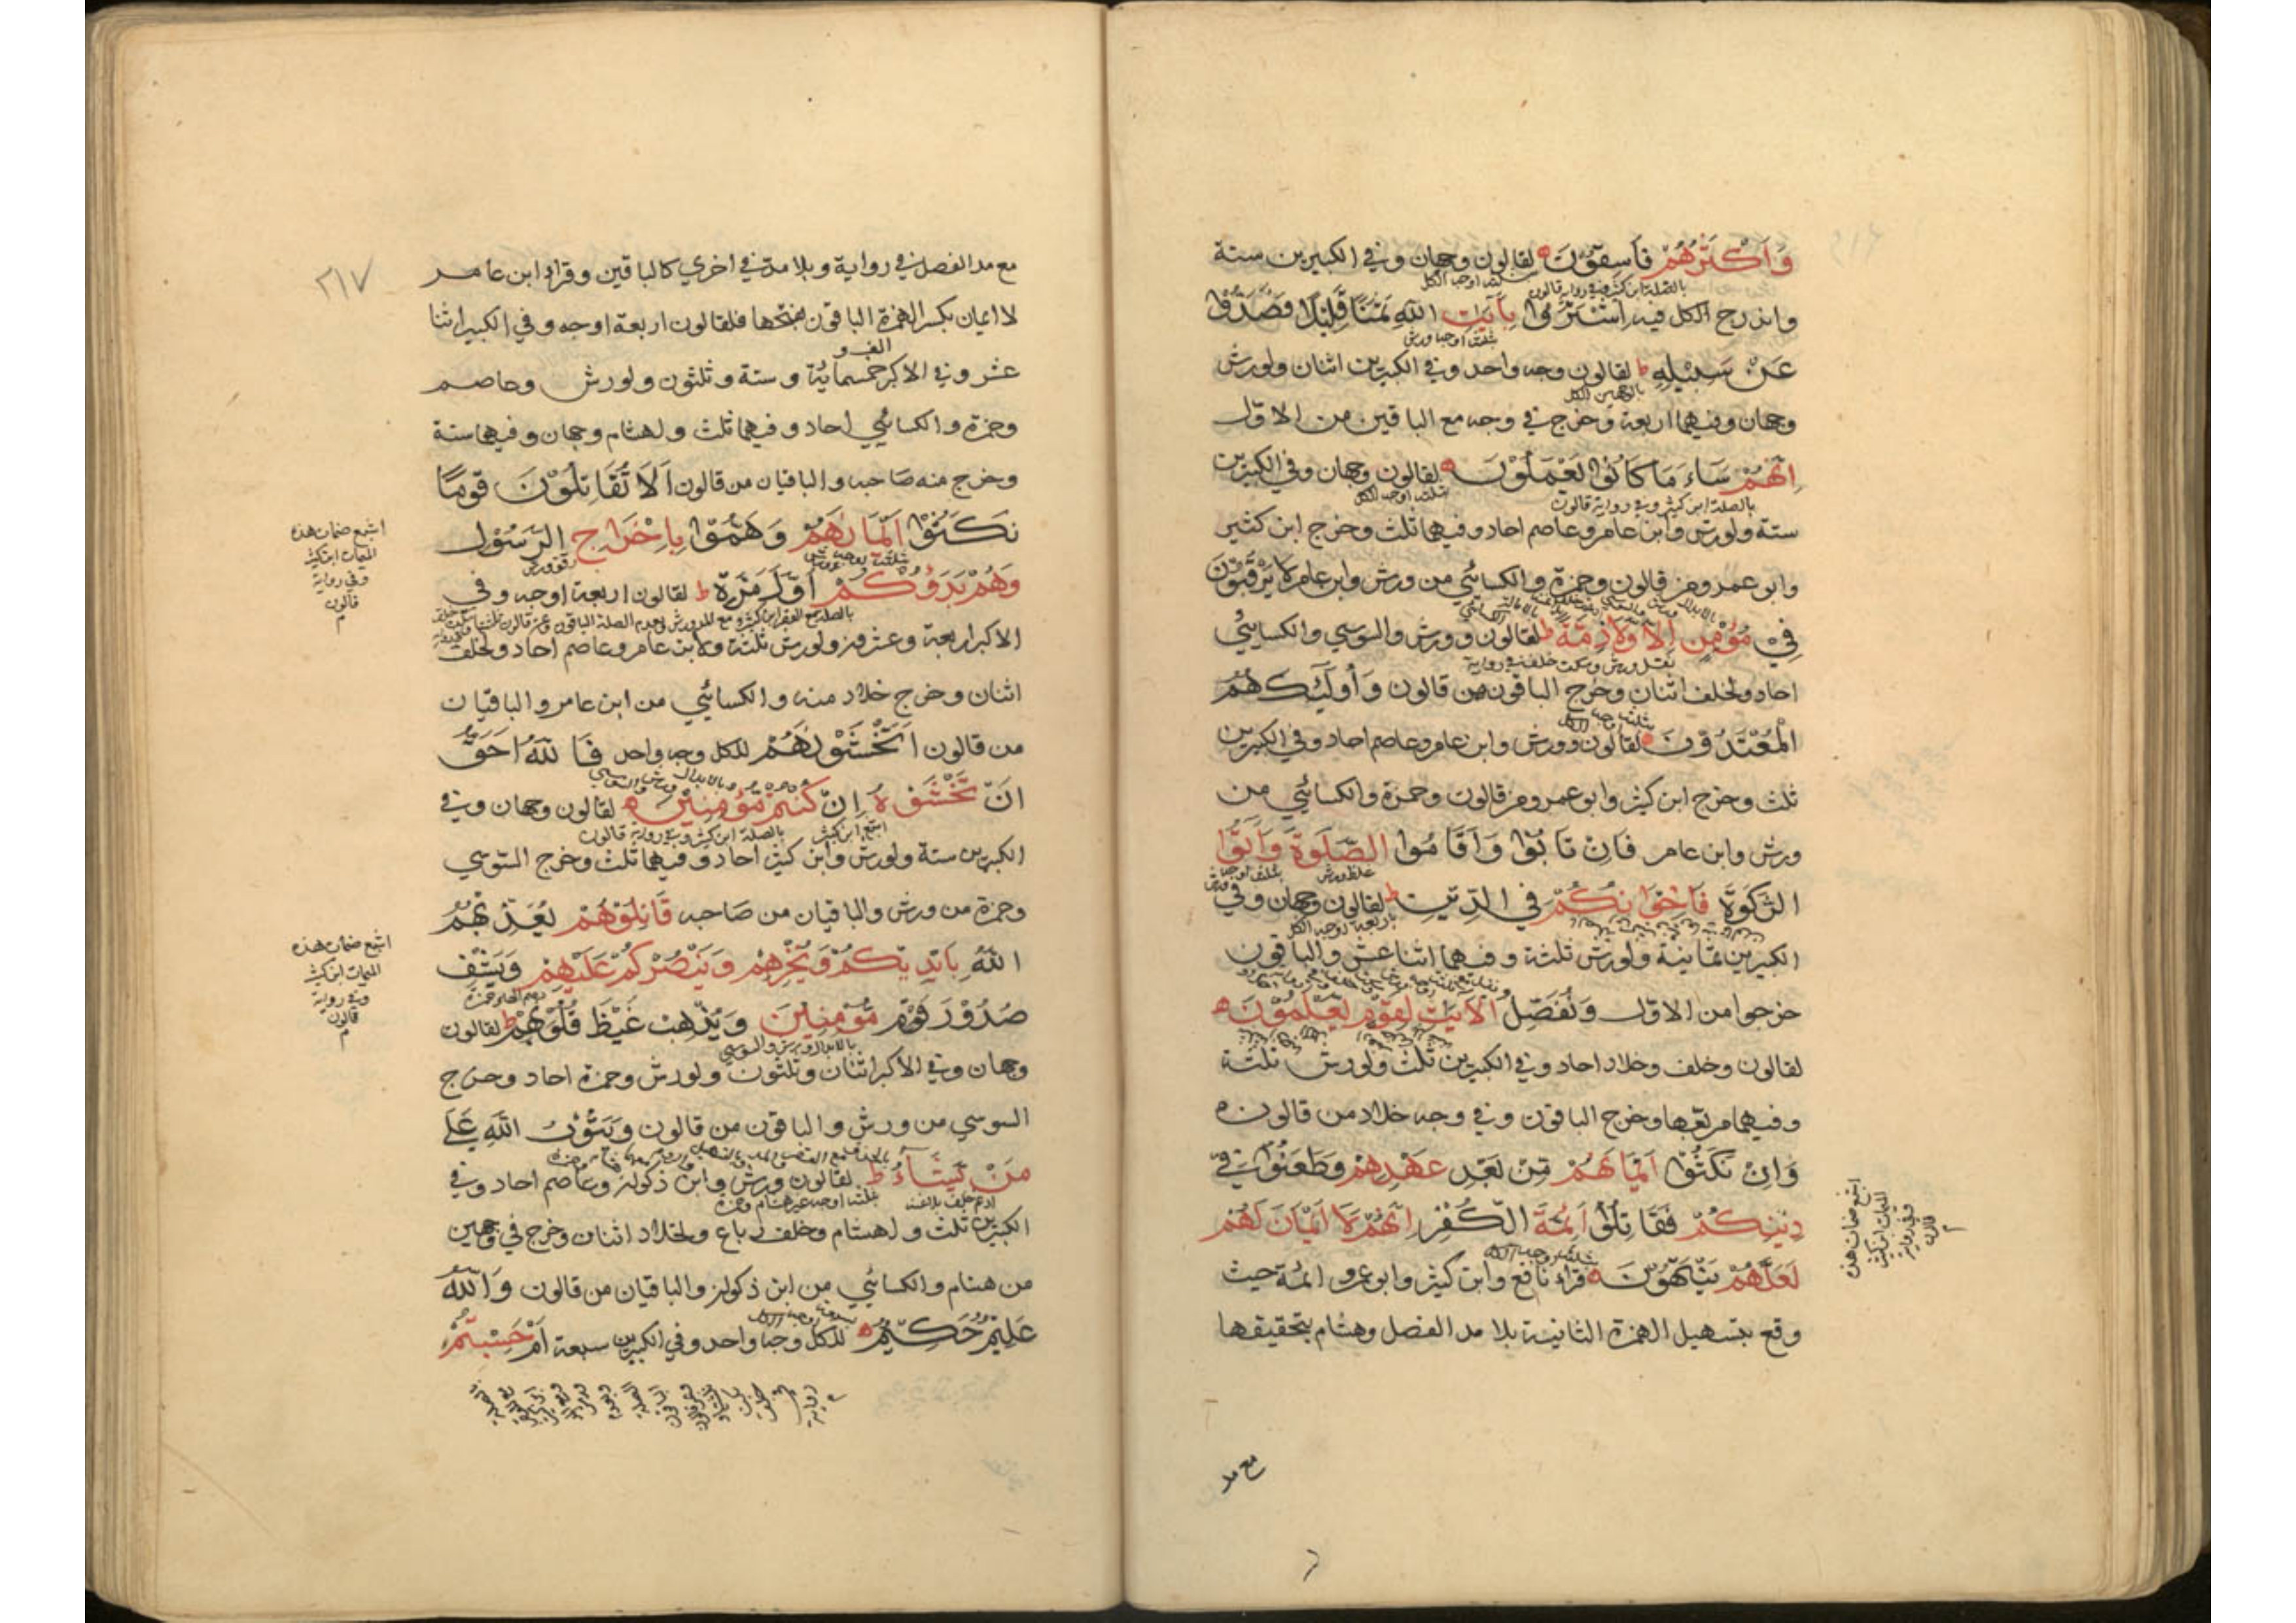 وَأَكْثَرُهُمْ فَاسِقُونَ لقالون وجهان وفي الكبيرين ستة
بالصلة ابن كثير وفي رواية قالون
واندرج الكل فيه اشْتَرَوْا بِآيَاتِ اللّٰهِ ثَمَنًا قَلِيلًا فَصَدُّوا
عَنْ سَبِيلِهِ ط لقالون وجه واحد وفي الكبيرين اثنان ولورش
وجهان وفيهما اربعة وخرج في وجه مع الباقين من الاول
اِنَّهُمْ سَاءَ مَا كَانُوا يَعْمَلُونَ لقالون وجهان وفي الكبيرين
بالصلة ابن كثير وفي رواية قالون
ستة ولورش وابن عامر وعاصم احاد وفيهما ثلث وخرج ابن كثير
وابو عمرو من قالون وحمزة والكسائي من ورش وابن عامر لَا يَرْقُبُونَ
فِي مُؤْمِنٍ اِلًّا وَلَا ذِمَّةً ط لقالون وورش والسوسي والكسائي
بنقل ورش وسكت خلف في رواية
احاد ولخلف اثنان وخرج الباقون من قالون وَأُولَٰئِكَ هُمُ
الْمُعْتَدُونَ لقالون وورش وابن عامر وعاصم احاد وفي الكبيرين
ثلث وخرج ابن كثير وابو عمرو من قالون وحمزة والكسائي من
ورش وابن عامر فَاِنْ تَابُوا وَاَقَامُوا الصَّلٰوةَ وَاٰتَوُا
الزَّكٰوةَ فَاِخْوَانُكُمْ فِي الدِّينِ ط لقالون وجهان وفي
الكبيرين ثمانية ولورش ثلثة وفيهما اثنا عشر والباقون
خرجوا من الاول وَنُفَصِّلُ الْاٰيٰتِ لِقَوْمٍ يَعْلَمُونَ
لقالون وخلف وخلاد احاد وفي الكبيرين ثلث ولورش ثلثة
وفيهما مربعها وخرج الباقون وفي وجه خلاد من قالون
وَاِنْ نَكَثُوا اَيْمَانَهُمْ مِنْ بَعْدِ عَهْدِهِمْ وَطَعَنُوا فِي
دِينِكُمْ فَقَاتِلُوا اَئِمَّةَ الْكُفْرِ اِنَّهُمْ لَا اَيْمَانَ لَهُمْ
لَعَلَّهُمْ يَنْتَهُونَ قراء نافع وابن كثير وابو عمرو ائمة حيث
وقع بتسهيل الهمزة الثانية بلا مد الفصل وهشام بتحقيقها
اشبع ضمات هذه
الميمات ابن كثير
وفي رواية
قالون
مع مد
٢١٧
مع مد الفصل في رواية وبلا مد في اخري كالباقين وقراء ابن عامر
لا ايمان بكسر الهمزة الباقون بفتحها فلقالون اربعة اوجه وفي الكبير اثنا
عشر وفي الاكبر خمسماية وستة وثلثون ولورش وعاصم
وحمزة والكسائي احاد وفيهما ثلث ولهشام وجهان وفيهما ستة
وخرج منه صاحبه والباقيان من قالون اَلَا تُقَاتِلُونَ قَوْمًا
نَكَثُوا اَيْمَانَهُمْ وَهَمُّوا بِاِخْرَاجِ الرَّسُولِ
وَهُمْ بَدَؤُكُمْ اَوَّلَ مَرَّةٍ ط لقالون اربعة اوجه وفي
الاكبر اربعة وعشرون ولورش ثلثة ولابن عامر وعاصم احاد ولخلف
اثنان وخرج خلاد منه والكسائي من ابن عامر والباقيان
من قالون اَتَخْشَوْنَهُمْ للكل وجه واحد فَاللّٰهُ اَحَقُّ
اَنْ تَخْشَوْهُ اِنْ كُنْتُمْ مُؤْمِنِينَ لقالون وجهان وفي
بالصلة ابن كثير وفي رواية قالون
الكبيرين ستة ولورش وابن كثير احاد وفيهما ثلث وخرج السوسي
وحمزة من ورش والباقيان من صاحبه قَاتِلُوهُمْ يُعَذِّبْهُمُ
اللّٰهُ بِاَيْدِيكُمْ وَيُخْزِهِمْ وَيَنْصُرْكُمْ عَلَيْهِمْ وَيَشْفِ
صُدُورَ قَوْمٍ مُؤْمِنِينَ وَيُذْهِبْ غَيْظَ قُلُوبِهِمْ ط لقالون
بالابدال ورش والسوسي
وجهان وفي الاكبر اثنان وثلثون ولورش وحمزة احاد وخرج
السوسي من ورش والباقون من قالون وَيَتُوبُ اللّٰهُ عَلٰى
مَنْ يَشَاءُ ط لقالون وورش وابن ذكوان وعاصم احاد وفي
الكبيرين ثلث ولهشام وخلف رباع ولخلاد اثنان وخرج في وجهين
من هشام والكسائي من ابن ذكوان والباقيان من قالون وَاللّٰهُ
عَلِيمٌ حَكِيمٌ للكل وجه واحد وفي الكبيرين سبعة اَمْ حَسِبْتُمْ
اشبع ضمات هذه
الميمات ابن كثير
وفي رواية
قالون
اشبع ضمات هذه
الميمات ابن كثير
وفي رواية
قالون